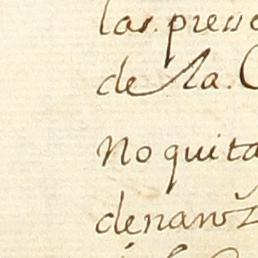 las. presse
de la. C
No quita
denanz